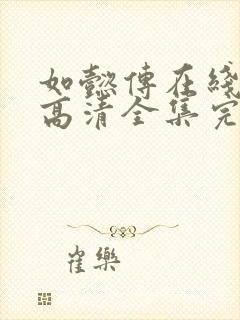 如懿傳在綫
高清全集完
崔樂